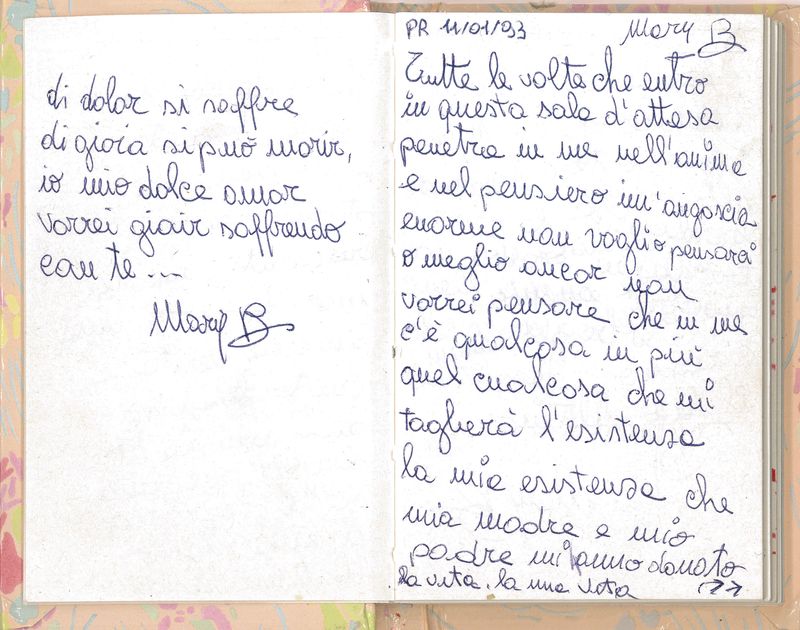 di dolor si soffre
di gioia si può morir,
io mio dolce amor
vorrei gioir soffrendo
con te ...
Mary B
PR 11/01/93 Mary B
Tutte le volte che entro
in questa sala d'attesa
penetra in me nell'anima
e nel pensiero un'angoscia
enorme non voglio pensarci
o meglio ancor non
vorrei pensare che in me
c'è qualcosa in più
quel cualcosa che mi
taglierà l'esistenza
la mia esistenza che
mia madre e mio
padre mi anno donato
la vita. la mia vita →→